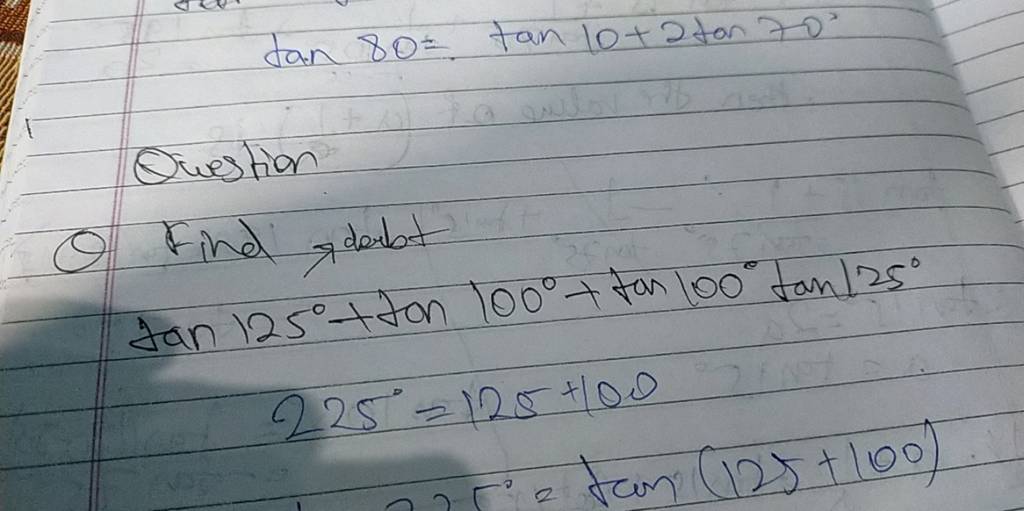 tan 80 = tan 10 + 2 tan 70°
Question
Find → doubt
tan 125° + tan 100° + tan 100° tan 125°
225° = 125 + 100
225° = tan (125 + 100)